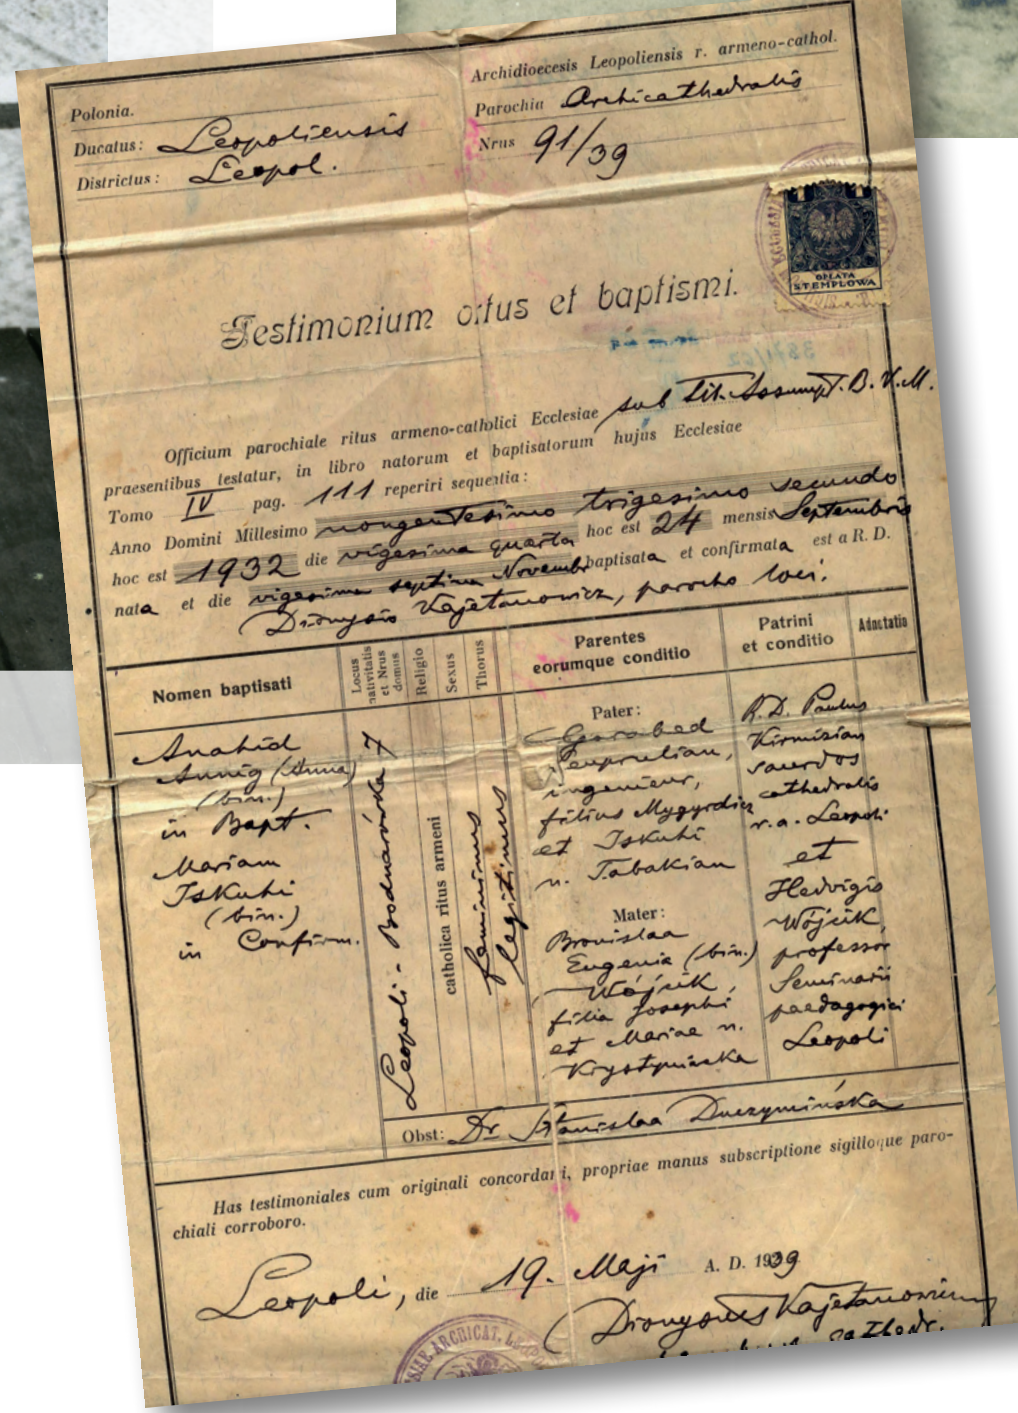 Polonia.
Ducatus: Leopoliensis
Districtus: Leopol.
Archidioecesis Leopoliensis r. armeno-cathol.
Parochia Archicathedralis
Nrus 91/39
OPŁATA
STEMPLOWA
Testimonium ortus et baptismi.
Officium parochiale ritus armeno-catholici Ecclesiae sub tit. Assumpt. B. V. M.
praesentibus testatur, in libro natorum et baptisatorum hujus Ecclesiae
Tomo IV pag. 111 reperiri sequentia:
Anno Domini Millesimo nongentesimo trigesimo secundo
hoc est 1932 die vigesima quarta hoc est 24 mensis Septembris
nata et die vigesima septima Novembr baptisata et confirmata est a R. D.
Dionysio Kajetanowicz, parocho loci.
Nomen baptisati
Locus nativitatis et Nrus domus
Religio
Sexus
Thorus
Parentes eorumque conditio
Patrini et conditio
Adnotatio
Anahid
Annig (Anna)
(bin.)
in Bapt.
Mariam
Iskuhi
(bin.)
in Confirm.
Leopoli - Bodnarówka 7
catholica ritus armeni
femininus
legitimus
Pater:
Garabed
ingenieur,
filius Mygyrdicz
et Iskuhi
n. Tabakian
Mater:
Bronislaa
Eugenia (bin.)
Wójcik,
filia Josephi
et Mariae n.
Krystyniacka
R. D. Paulus
Kirmizian
sacerdos
cathedralis
r. a. Leopoli
et
Hedvigis
Wójcik,
professor
Seminarii
paedagogici
Leopoli
Obst: Dr Stanislaa Duczymińska
Has testimoniales cum originali concordari, propriae manus subscriptione sigilloque paro-
chiali corroboro.
Leopoli, die 19. Maji A. D. 1939
Dionysius Kajetanowicz